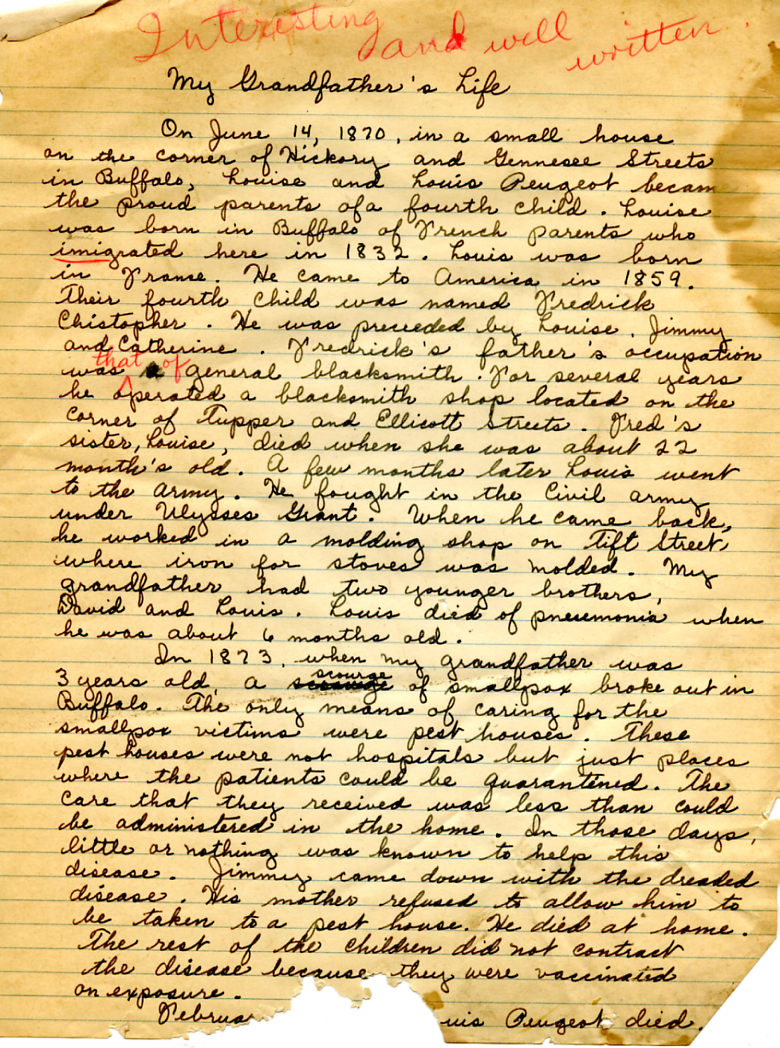 Interesting and well written.
My Grandfather's Life
On June 14, 1870, in a small house
on the corner of Hickory and Gennesee Streets
in Buffalo, Louise and Louis Peugeot becam
the proud parents of a fourth child. Louise
was born in Buffalo of French parents who
imigrated here in 1832. Louis was born
in France. He came to America in 1859.
Their fourth child was named Fredrick
Chistopher. He was preceeded by Louise, Jimmy
and Catherine. Fredrick's father's occupation
was that of general blacksmith. For several years
he operated a blacksmith shop located on the
corner of Tupper and Ellicott Streets. Fred's
sister, Louise, died when she was about 22
month's old. A few months later Louis went
to the army. He fought in the Civil army
under Ulysses Grant. When he came back,
he worked in a molding shop on Tift Street,
where iron for stoves was molded. My
grandfather had two younger brothers,
David and Louis. Louis died of pneumonia when
he was about 6 months old.
In 1873, when my grandfather was
3 years old, a scourge of smallpox broke out in
Buffalo. The only means of caring for the
smallpox victims were pest houses. These
pest houses were not hospitals but just places
where the patients could be quarantened. The
care that they received was less than could
be administered in the home. In those days,
little or nothing was known to help this
disease. Jimmy came down with the dreaded
disease. His mother refused to allow him to
be taken to a pest house. He died at home.
The rest of the children did not contract
the disease because they were vaccinated
on exposure.
Februa uis Peugeot died.